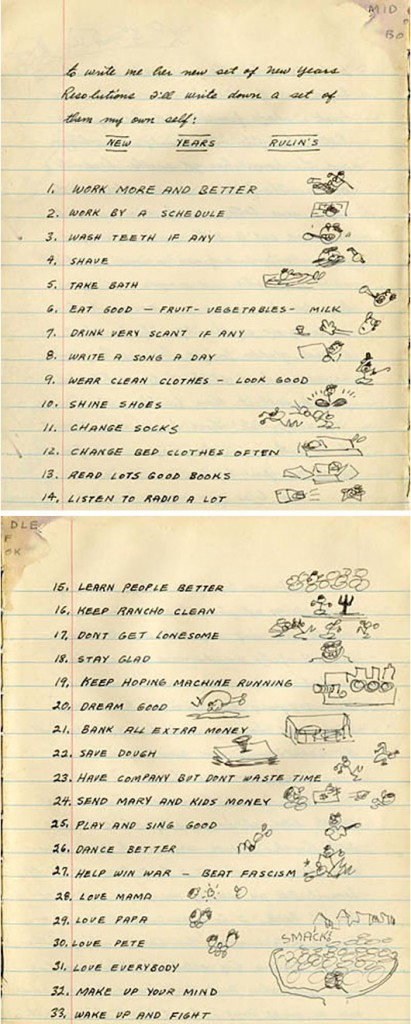 MID
BO
to write me her new set of New Years
Resolutions I'll write down a set of
them my own self:
NEW YEARS RULIN'S
1. WORK MORE AND BETTER
2. WORK BY A SCHEDULE
3. WASH TEETH IF ANY
4. SHAVE
5. TAKE BATH
6. EAT GOOD — FRUIT - VEGETABLES - MILK
7. DRINK VERY SCANT IF ANY
8. WRITE A SONG A DAY
9. WEAR CLEAN CLOTHES - LOOK GOOD
10. SHINE SHOES
11. CHANGE SOCKS
12. CHANGE BED CLOTHES OFTEN
13. READ LOTS GOOD BOOKS
14. LISTEN TO RADIO A LOT
DLE
F
OK
15. LEARN PEOPLE BETTER
16. KEEP RANCHO CLEAN
17. DONT GET LONESOME
18. STAY GLAD
19. KEEP HOPING MACHINE RUNNING
20. DREAM GOOD
21. BANK ALL EXTRA MONEY
22. SAVE DOUGH
23. HAVE COMPANY BUT DONT WASTE TIME
24. SEND MARY AND KIDS MONEY
25. PLAY AND SING GOOD
26. DANCE BETTER
27. HELP WIN WAR - BEAT FASCISM
28. LOVE MAMA
29. LOVE PAPA
30. LOVE PETE
SMACK!
31. LOVE EVERYBODY
32. MAKE UP YOUR MIND
33. WAKE UP AND FIGHT